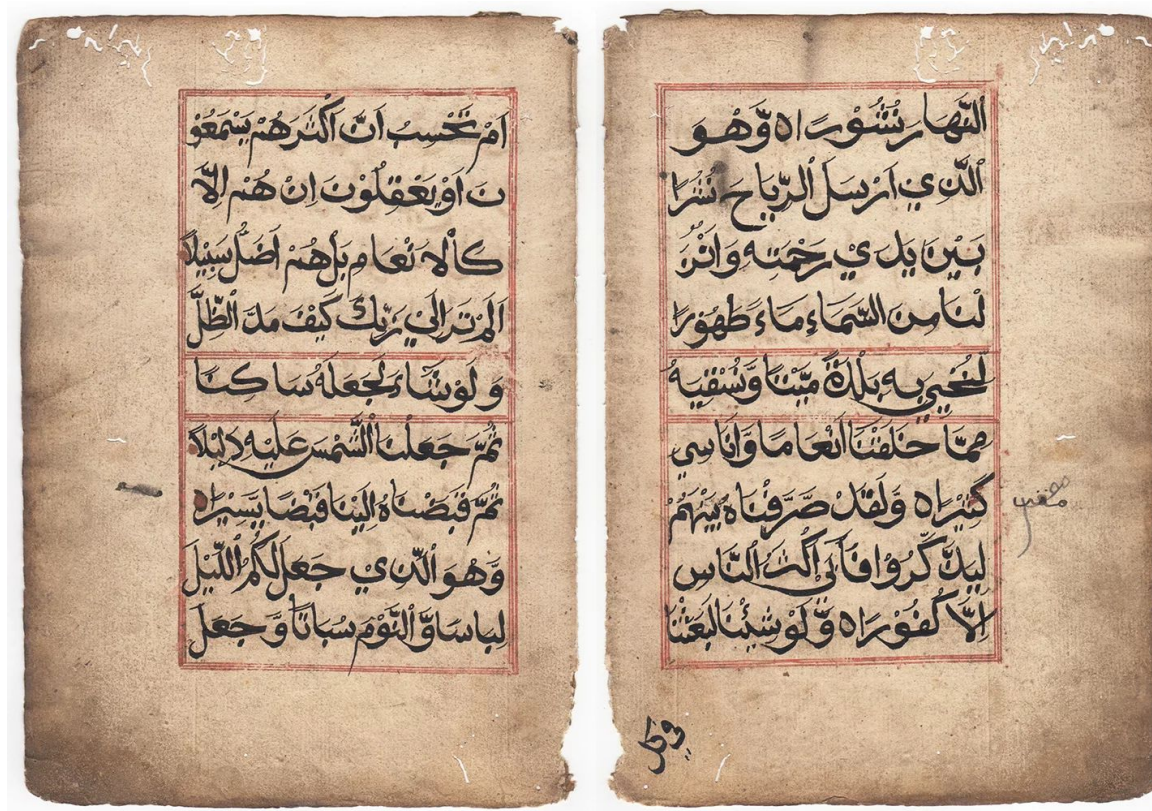 اَمْ تَحْسِبُ اَنَّ اَكْثَرَهُمْ يَسْمَعُوْ
نَ اَوْ يَعْقِلُوْنَ اِنْ هُمْ اِلَّا
كَالْاَنْعَامِ بَلْ هُمْ اَضَلُّ سَبِيْلًا
اَلَمْ تَرَ اِلٰي رَبِّكَ كَيْفَ مَدَّ الظِّلَّ
وَلَوْ شَاءَ لَجَعَلَهُ سَاكِنًا
ثُمَّ جَعَلْنَا الشَّمْسَ عَلَيْهِ دَلِيْلًا
ثُمَّ قَبَضْنَاهُ اِلَيْنَا قَبْضًا يَّسِيْرًا ه
وَّهُوَ الَّذِي جَعَلَ لَكُمُ اللَّيْلَ
لِبَاسًا وَّالنَّوْمَ سُبَاتًا وَّجَعَلَ
النَّهَارَ نُشُوْرًا ه وَّهُوَ
الَّذِي اَرْسَلَ الرِّيَاحَ نُشْرًا
بَيْنَ يَدَيْ رَحْمَتِهِ وَاَنْزَ
لْنَا مِنَ السَّمَاءِ مَاءً طَهُوْرًا
لِنُحْيِيَ بِهِ بَلْدَةً مَّيْتًا وَّنُسْقِيَهُ
مِمَّا خَلَقْنَا اَنْعَامًا وَّاَنَاسِي
كَثِيْرًا ه وَّلَقَدْ صَرَّفْنَاهُ بَيْنَهُمْ
لِيَذَّكَّرُوْا فَاَبٰي اَكْثَرُ النَّاسِ
اِلَّا كُفُوْرًا ه وَّلَوْ شِئْنَا لَبَعَثْنَا
في كل